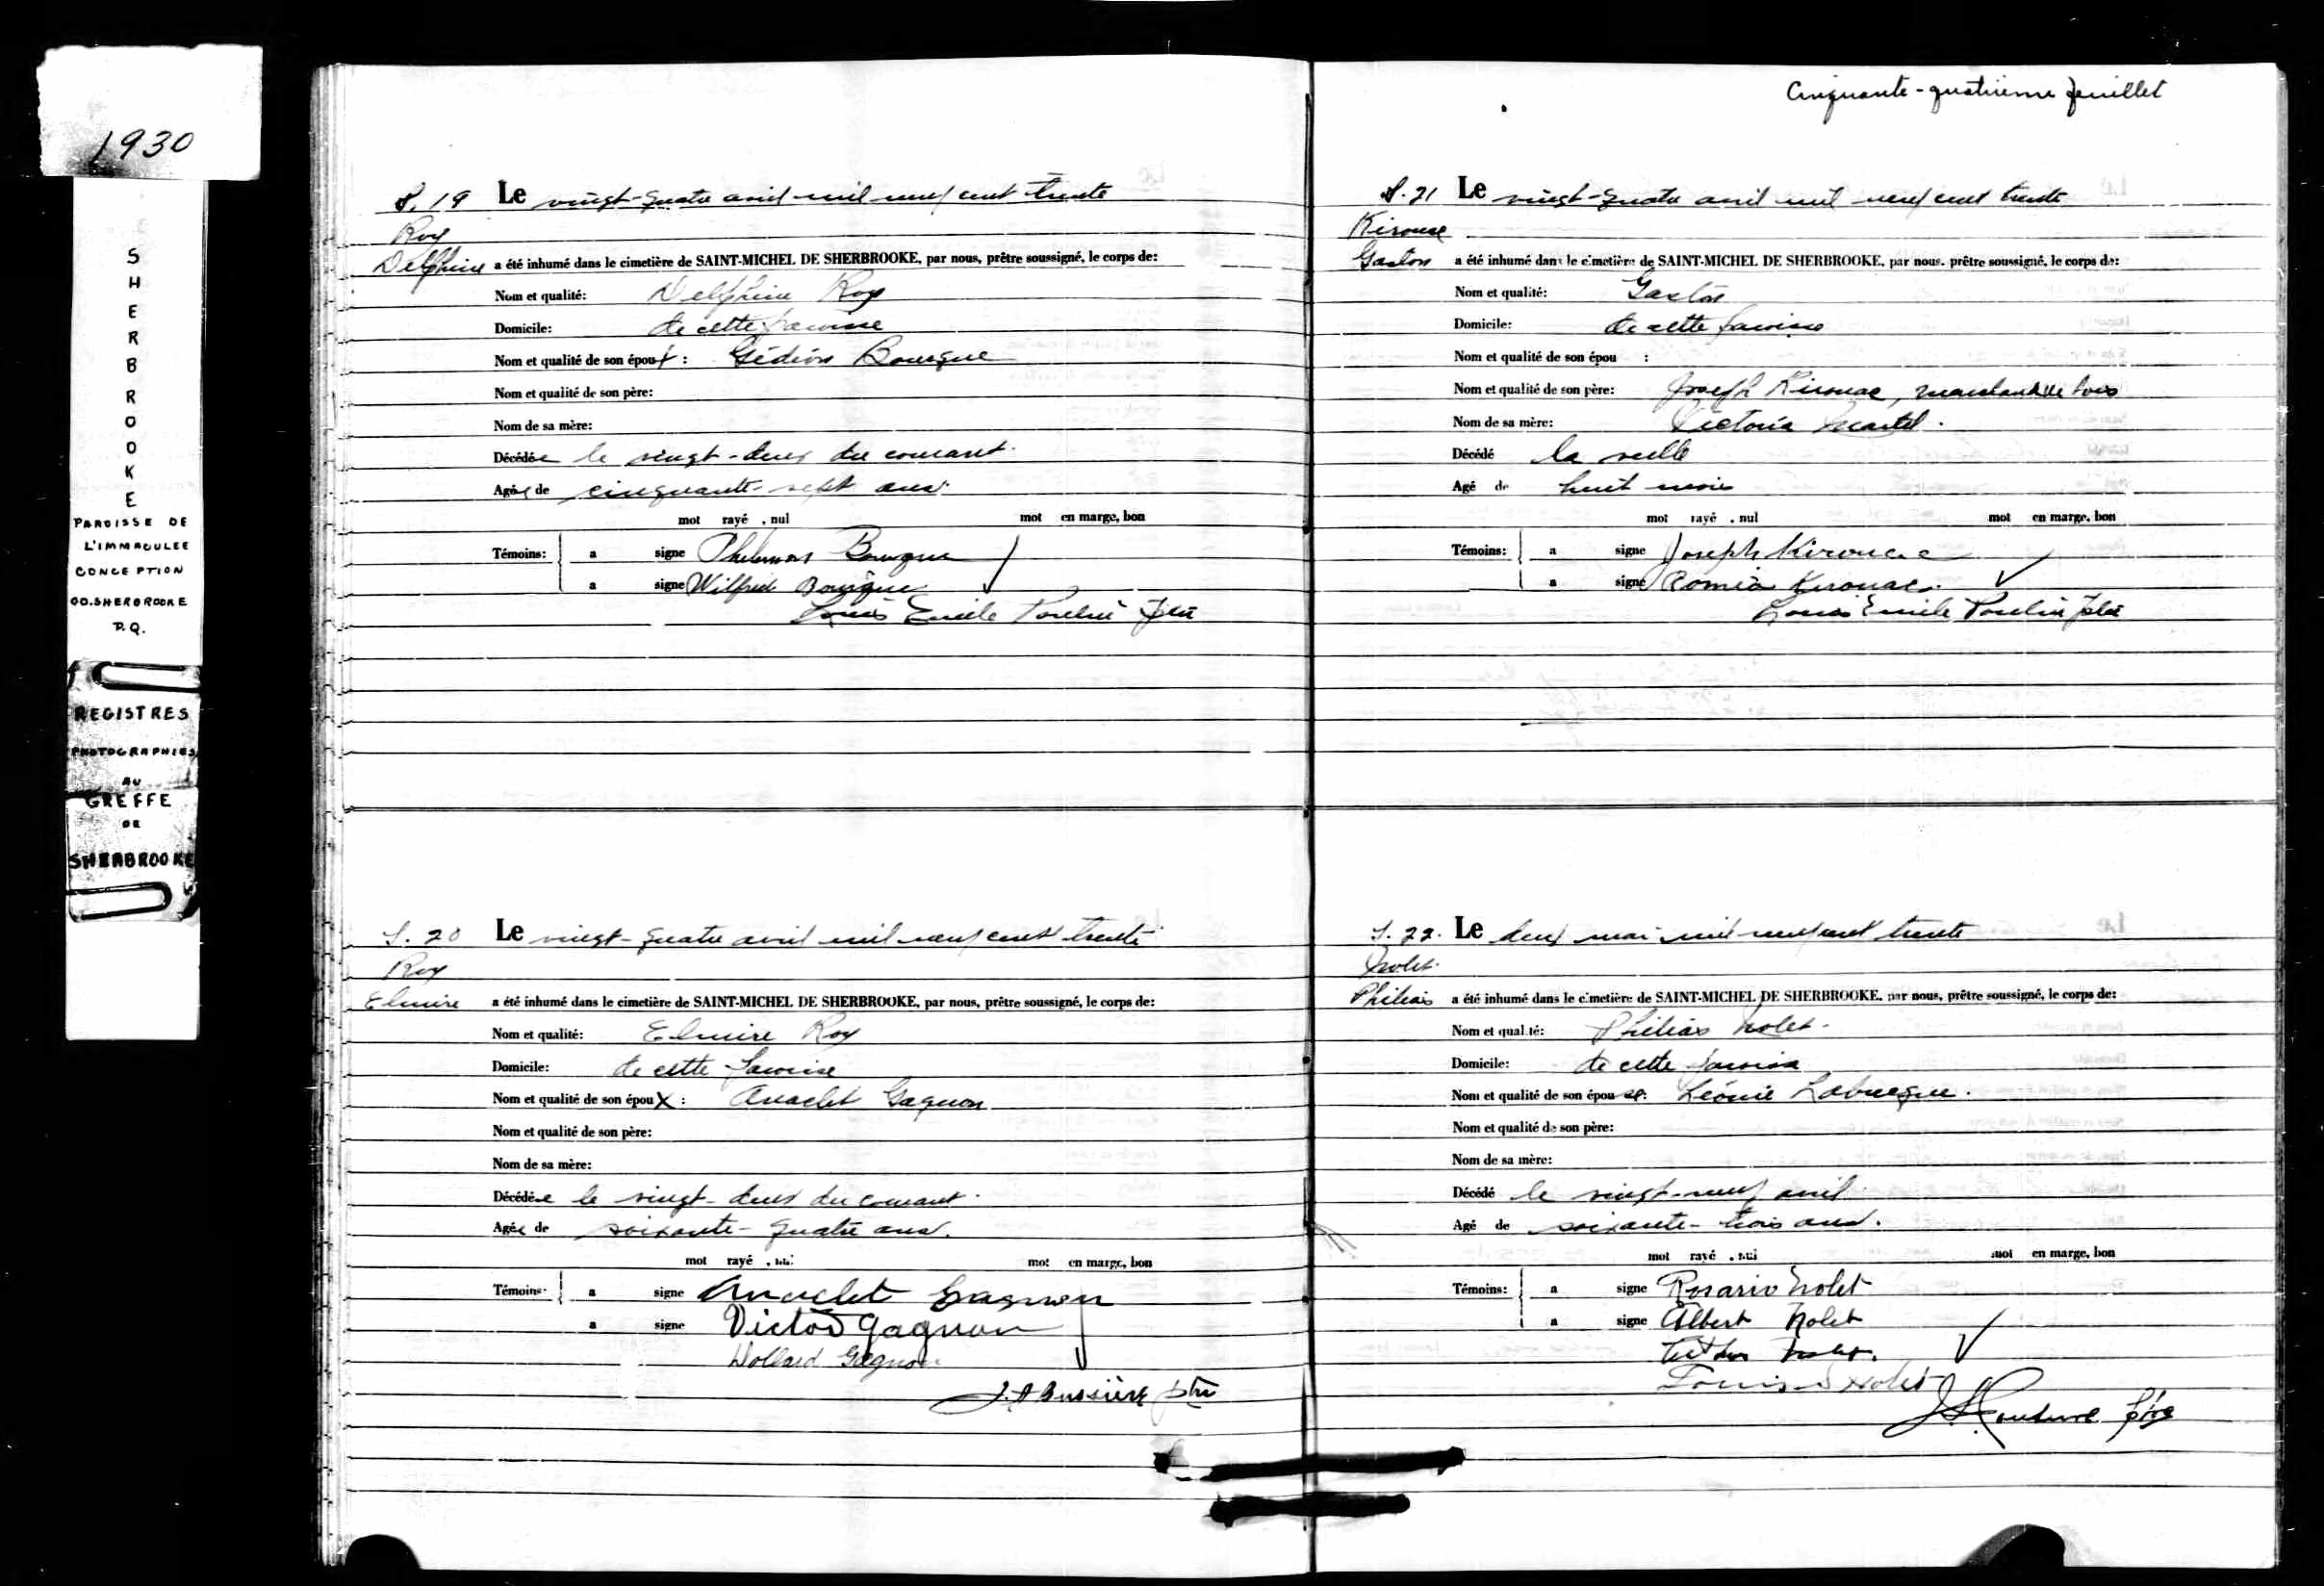 1930
SHERBROOKE
PAROISSE DE
L'IMMACULEE
CONCEPTION
CO. SHERBROOKE
P.Q.
REGISTRES
PHOTOGRAPHIES
AU
GREFFE
DE
SHERBROOKE
S. 19 Le vingt-quatre avril mil neuf cent trente
Roy
Delphine a été inhumé dans le cimetière de SAINT-MICHEL DE SHERBROOKE, par nous, prêtre soussigné, le corps de:
Nom et qualité: Delphine Roy
Domicile: de cette paroisse
Nom et qualité de son époux : Gédéon Bourque
Nom et qualité de son père:
Nom de sa mère:
Décédée le vingt-deux du courant.
Agée de cinquante-sept ans.
mot rayé , nul mot en marge, bon
Témoins: a signe Philemon Bourque
a signe Wilfrid Bourque
Louis Emile Poulin ptre
S. 20 Le vingt-quatre avril mil neuf cent trente
Roy
Elmire a été inhumé dans le cimetière de SAINT-MICHEL DE SHERBROOKE, par nous, prêtre soussigné, le corps de:
Nom et qualité: Elmire Roy
Domicile: de cette paroisse
Nom et qualité de son époux : Anaclet Gagnon
Nom et qualité de son père:
Nom de sa mère:
Décédée le vingt-deux du courant.
Agée de soixante-quatre ans.
mot rayé , nul mot en marge, bon
Témoins: a signe Anaclet Gagnon
a signe Victor Gagnon
Dollard Gagnon
J. A Bussière ptre
Cinquante-quatrième feuillet
S. 21 Le vingt-quatre avril mil neuf cent trente
Kirouac
Gaston a été inhumé dans le cimetière de SAINT-MICHEL DE SHERBROOKE, par nous, prêtre soussigné, le corps de:
Nom et qualité: Gaston
Domicile: de cette paroisse
Nom et qualité de son épou :
Nom et qualité de son père: Joseph Kirouac, marchand de bois
Nom de sa mère: Victoria Martel.
Décédé la veille
Agé de huit mois
mot rayé , nul mot en marge, bon
Témoins: a signe Joseph Kirouac
a signe Roméo Kirouac.
Louis Emile Poulin ptre
S. 22. Le deux mai mil neuf cent trente
Nolet.
Philias a été inhumé dans le cimetière de SAINT-MICHEL DE SHERBROOKE, par nous, prêtre soussigné, le corps de:
Nom et qualité: Philias Nolet.
Domicile: de cette paroisse
Nom et qualité de son épouse: Léonie Labrecque.
Nom et qualité de son père:
Nom de sa mère:
Décédé le vingt-neuf avril.
Agé de soixante-trois ans.
mot rayé , nul mot en marge, bon
Témoins: a signe Rosario Nolet
a signe Albert Nolet
Nolet.
Louis Nolet
Couture